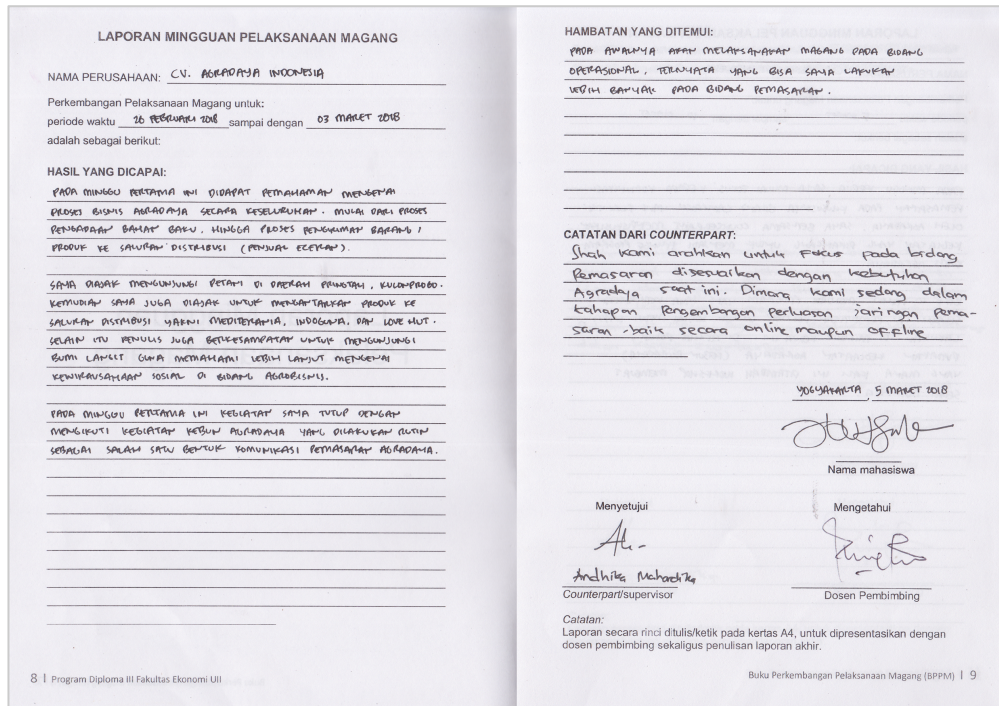 LAPORAN MINGGUAN PELAKSANAAN MAGANG
NAMA PERUSAHAAN: CV. AGRADAYA INDONESIA
Perkembangan Pelaksanaan Magang untuk:
periode waktu 26 FEBRUARI 2018 sampai dengan 03 MARET 2018
adalah sebagai berikut:
HASIL YANG DICAPAI:
PADA MINGGU PERTAMA INI DIDAPAT PEMAHAMAN MENGENAI
PROSES BISNIS AGRADAYA SECARA KESELURUHAN. MULAI DARI PROSES
PENGADAAN BAHAN BAKU, HINGGA PROSES PENGIRIMAN BARANG /
PRODUK KE SALURAN DISTRIBUSI (PENJUAL ECERAN).
SAYA DIAJAK MENGUNJUNGI PETANI DI DAERAH, KULONPROGO.
KEMUDIAN SAYA JUGA DIAJAK UNTUK MENGANTARKAN PRODUK KE
SALURAN DISTRIBUSI YAKNI MEDITERANIA, INDOGUNA, DAN LOVE HUT.
SELAIN ITU PENULIS JUGA BERKESAMPATAN UNTUK MENGUNJUNGI
BUMI LANGIT GUNA MEMAHAMI LEBIH LANJUT MENGENAI
KEWIRAUSAHAAN SOSIAL DI BIDANG AGROBISNIS.
PADA MINGGU PERTAMA INI KEGIATAN SAYA TUTUP DENGAN
MENGIKUTI KEGIATAN KEBUN AGRADAYA YANG DILAKUKAN RUTIN
SEBAGAI SALAH SATU BENTUK KOMUNIKASI PEMASARAN AGRADAYA.
8 | Program Diploma III Fakultas Ekonomi UII
HAMBATAN YANG DITEMUI:
PADA AWALNYA AKAN MELAKSANAKAN MAGANG PADA BIDANG
OPERASIONAL, TERNYATA YANG BISA SAYA LAKUKAN
LEBIH BANYAK PADA BIDANG PEMASARAN.
CATATAN DARI COUNTERPART:
Shah kami arahkan untuk Fokus pada bidang
Pemasaran disesuaikan dengan kebutuhan
Agradaya saat ini. Dimana kami sedang dalam
tahapan Pengembangan perluasan jaringan pema-
saran -baik secara online maupun offline
YOGYAKARTA, 5 MARET 2018
Nama mahasiswa
Menyetujui
Mengetahui
Andhika Mahardika
Counterpart/supervisor
Dosen Pembimbing
Catatan:
Laporan secara rinci ditulis/ketik pada kertas A4, untuk dipresentasikan dengan
dosen pembimbing sekaligus penulisan laporan akhir.
Buku Perkembangan Pelaksanaan Magang (BPPM) | 9